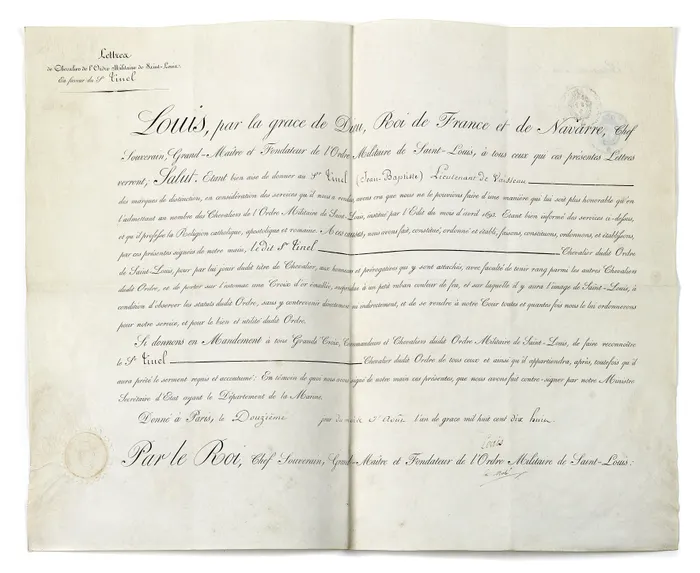 Lettres
de Chevalier de l'Ordre Militaire de Saint-Louis.
En faveur du Sr. Tinel
Louis, par la grace de Dieu, Roi de France et de Navarre, Chef
Souverain, Grand-Maître et Fondateur de l'Ordre Militaire de Saint-Louis, à tous ceux qui ces présentes Lettres
verront, Salut. Etant bien aise de donner au Sr. Tinel (Jean-Baptiste) Lieutenant de Vaisseau
des marques de distinction, en considération des services qu'il nous a rendus, nous avons cru que nous ne le pouvions faire d'une manière qui lui soit plus honorable qu'en
l'admettant au nombre des Chevaliers de l'Ordre Militaire de Saint-Louis, institué par l'Edit du mois d'avril 1693. Etant bien informé des services ci-dessus,
et qu'il professe la Religion catholique, apostolique et romaine. A ces causes, nous avons fait, constitué, ordonné et établi, faisons, constituons, ordonnons, et établissons,
par ces présentes signées de notre main, ledit Sr. Tinel Chevalier dudit Ordre
de Saint-Louis, pour par lui jouir dudit titre de Chevalier, aux honneurs et prérogatives qui y sont attachés, avec faculté de tenir rang parmi les autres Chevaliers
dudit Ordre, et de porter sur l'estomac une Croix d'or émaillée, suspendue à un petit ruban couleur de feu, et sur laquelle il y aura l'image de Saint-Louis, à
condition d'observer les statuts dudit Ordre, sans y contrevenir directement ou indirectement, et de se rendre à notre Cour toutes et quantes fois nous le lui ordonnerons
pour notre service, et pour le bien et utilité dudit Ordre.
Si donnons en Mandement à tous Grands' Croix, Commandeurs et Chevaliers dudit Ordre Militaire de Saint-Louis, de faire reconnaître
le Sr. Tinel Chevalier dudit Ordre de tous ceux et ainsi qu'il appartiendra, après, toutefois qu'il
aura prêté le serment requis et accoutumé: En témoin de quoi nous avons signé de notre main ces présentes, que nous avons fait contre-signer par notre Ministre
Secrétaire d'Etat ayant le Département de la Marine.
Donné à Paris, le Douzième jour du mois d'Août l'an de grace mil huit cent dix huit
Louis
Par le Roi, Chef Souverain, Grand-Maître et Fondateur de l'Ordre Militaire de Saint-Louis: